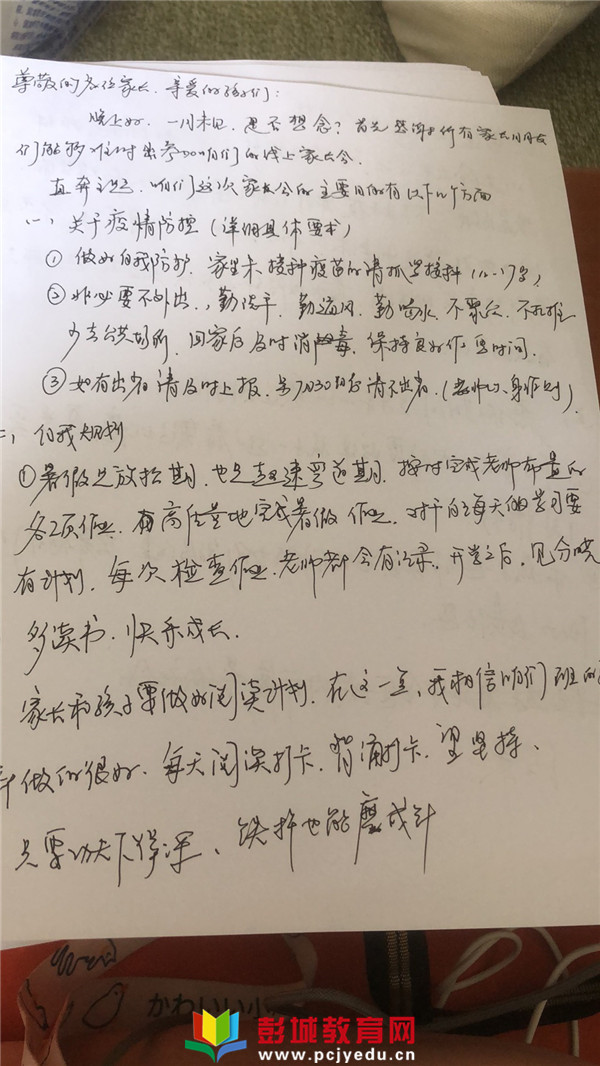 尊敬的各位家长、亲爱的孩子们:
晚上好. 一川未见. 是否想念? 首先感谢所有家长川朋友
们能够准时出参加咱们的线上家长会.
直奔主题. 咱们这次家长会的主要目的有以下几个方面
一、关于疫情防控 (详细具体要求)
① 做好自我防护. 家里未接种疫苗的请抓紧接种 (12-17岁)
② 非必要不外出, 勤洗手. 勤通风. 勤喝水. 不聚众. 不扎堆
少去公共场所. 回家后及时消毒. 保持良好作息时间.
③ 如有出省请及时上报. 7月30日后请不出省. (老师以身作则)
二、自我规划
① 暑假是放松期. 也是弯道期. 按时完成老师布置的
各项作业. 高质量地完成暑假作业. 对于自己每天的学习要
有计划. 每次检查作业. 老师都会有记录. 开学之后. 见分晓
多读书. 快乐成长.
家长和孩子要做好阅读计划. 在这一点, 我相信咱们班的
做的很好. 每天阅读打卡. 背诵打卡. 望坚持、
只要功夫下得深、铁杵也能磨成针
かわいい小
彭城教育网
www.pcjyedu.cn